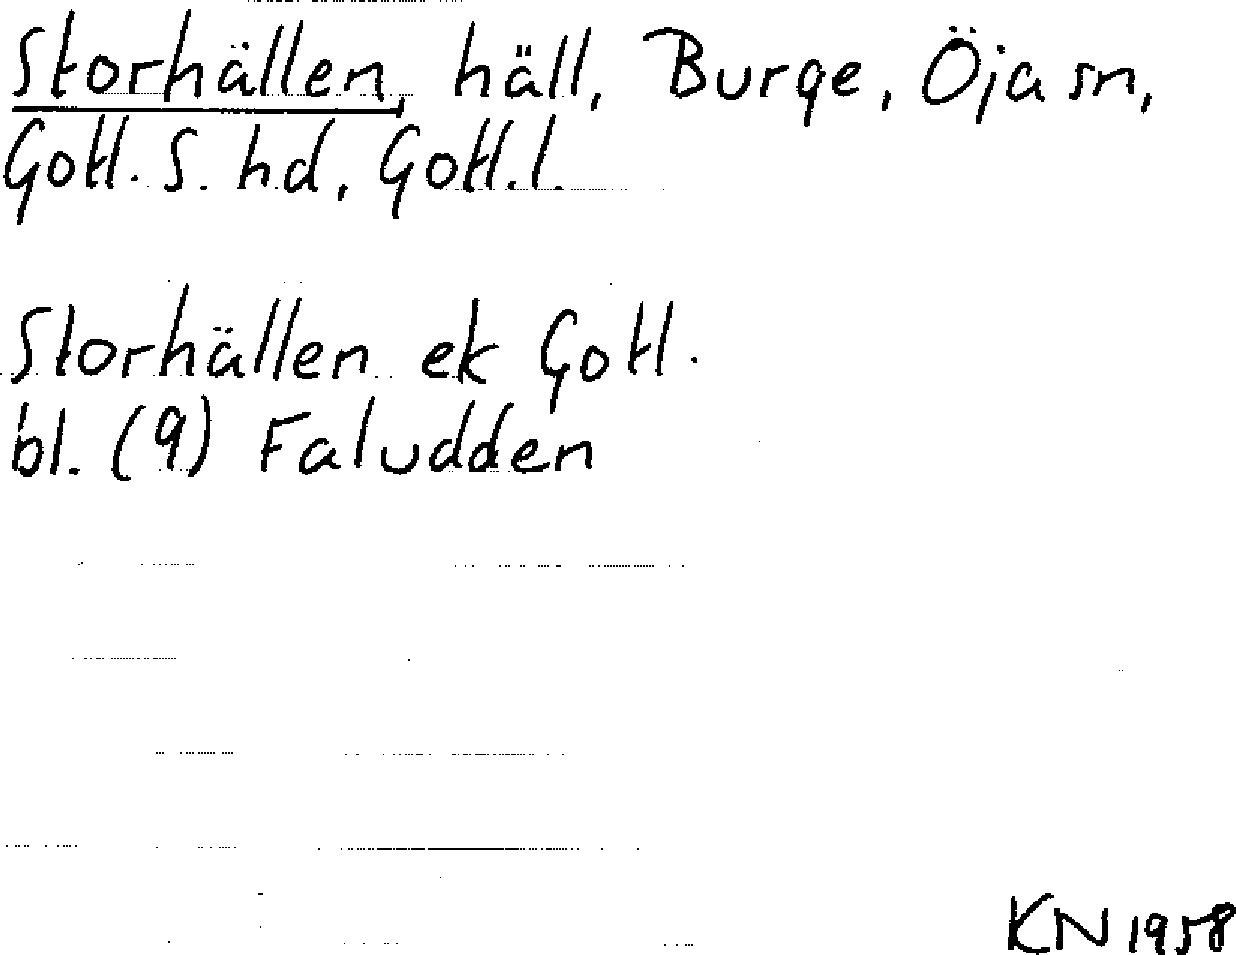 Storhällen, häll, Burge, Öja sn,
Gotl. S. hd, Gotl. l.
Storhällen ek Gotl.
bl. (9) Faludden
KN 1958